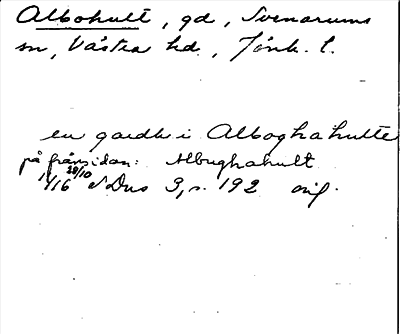 Albohult, gd, Svenarums
sn, Västra hd, Jönk. l.
en gardh i Alboghahulte
på frånsidan: Albughahult
1416 28/10 SDns 3, s. 192 orig.